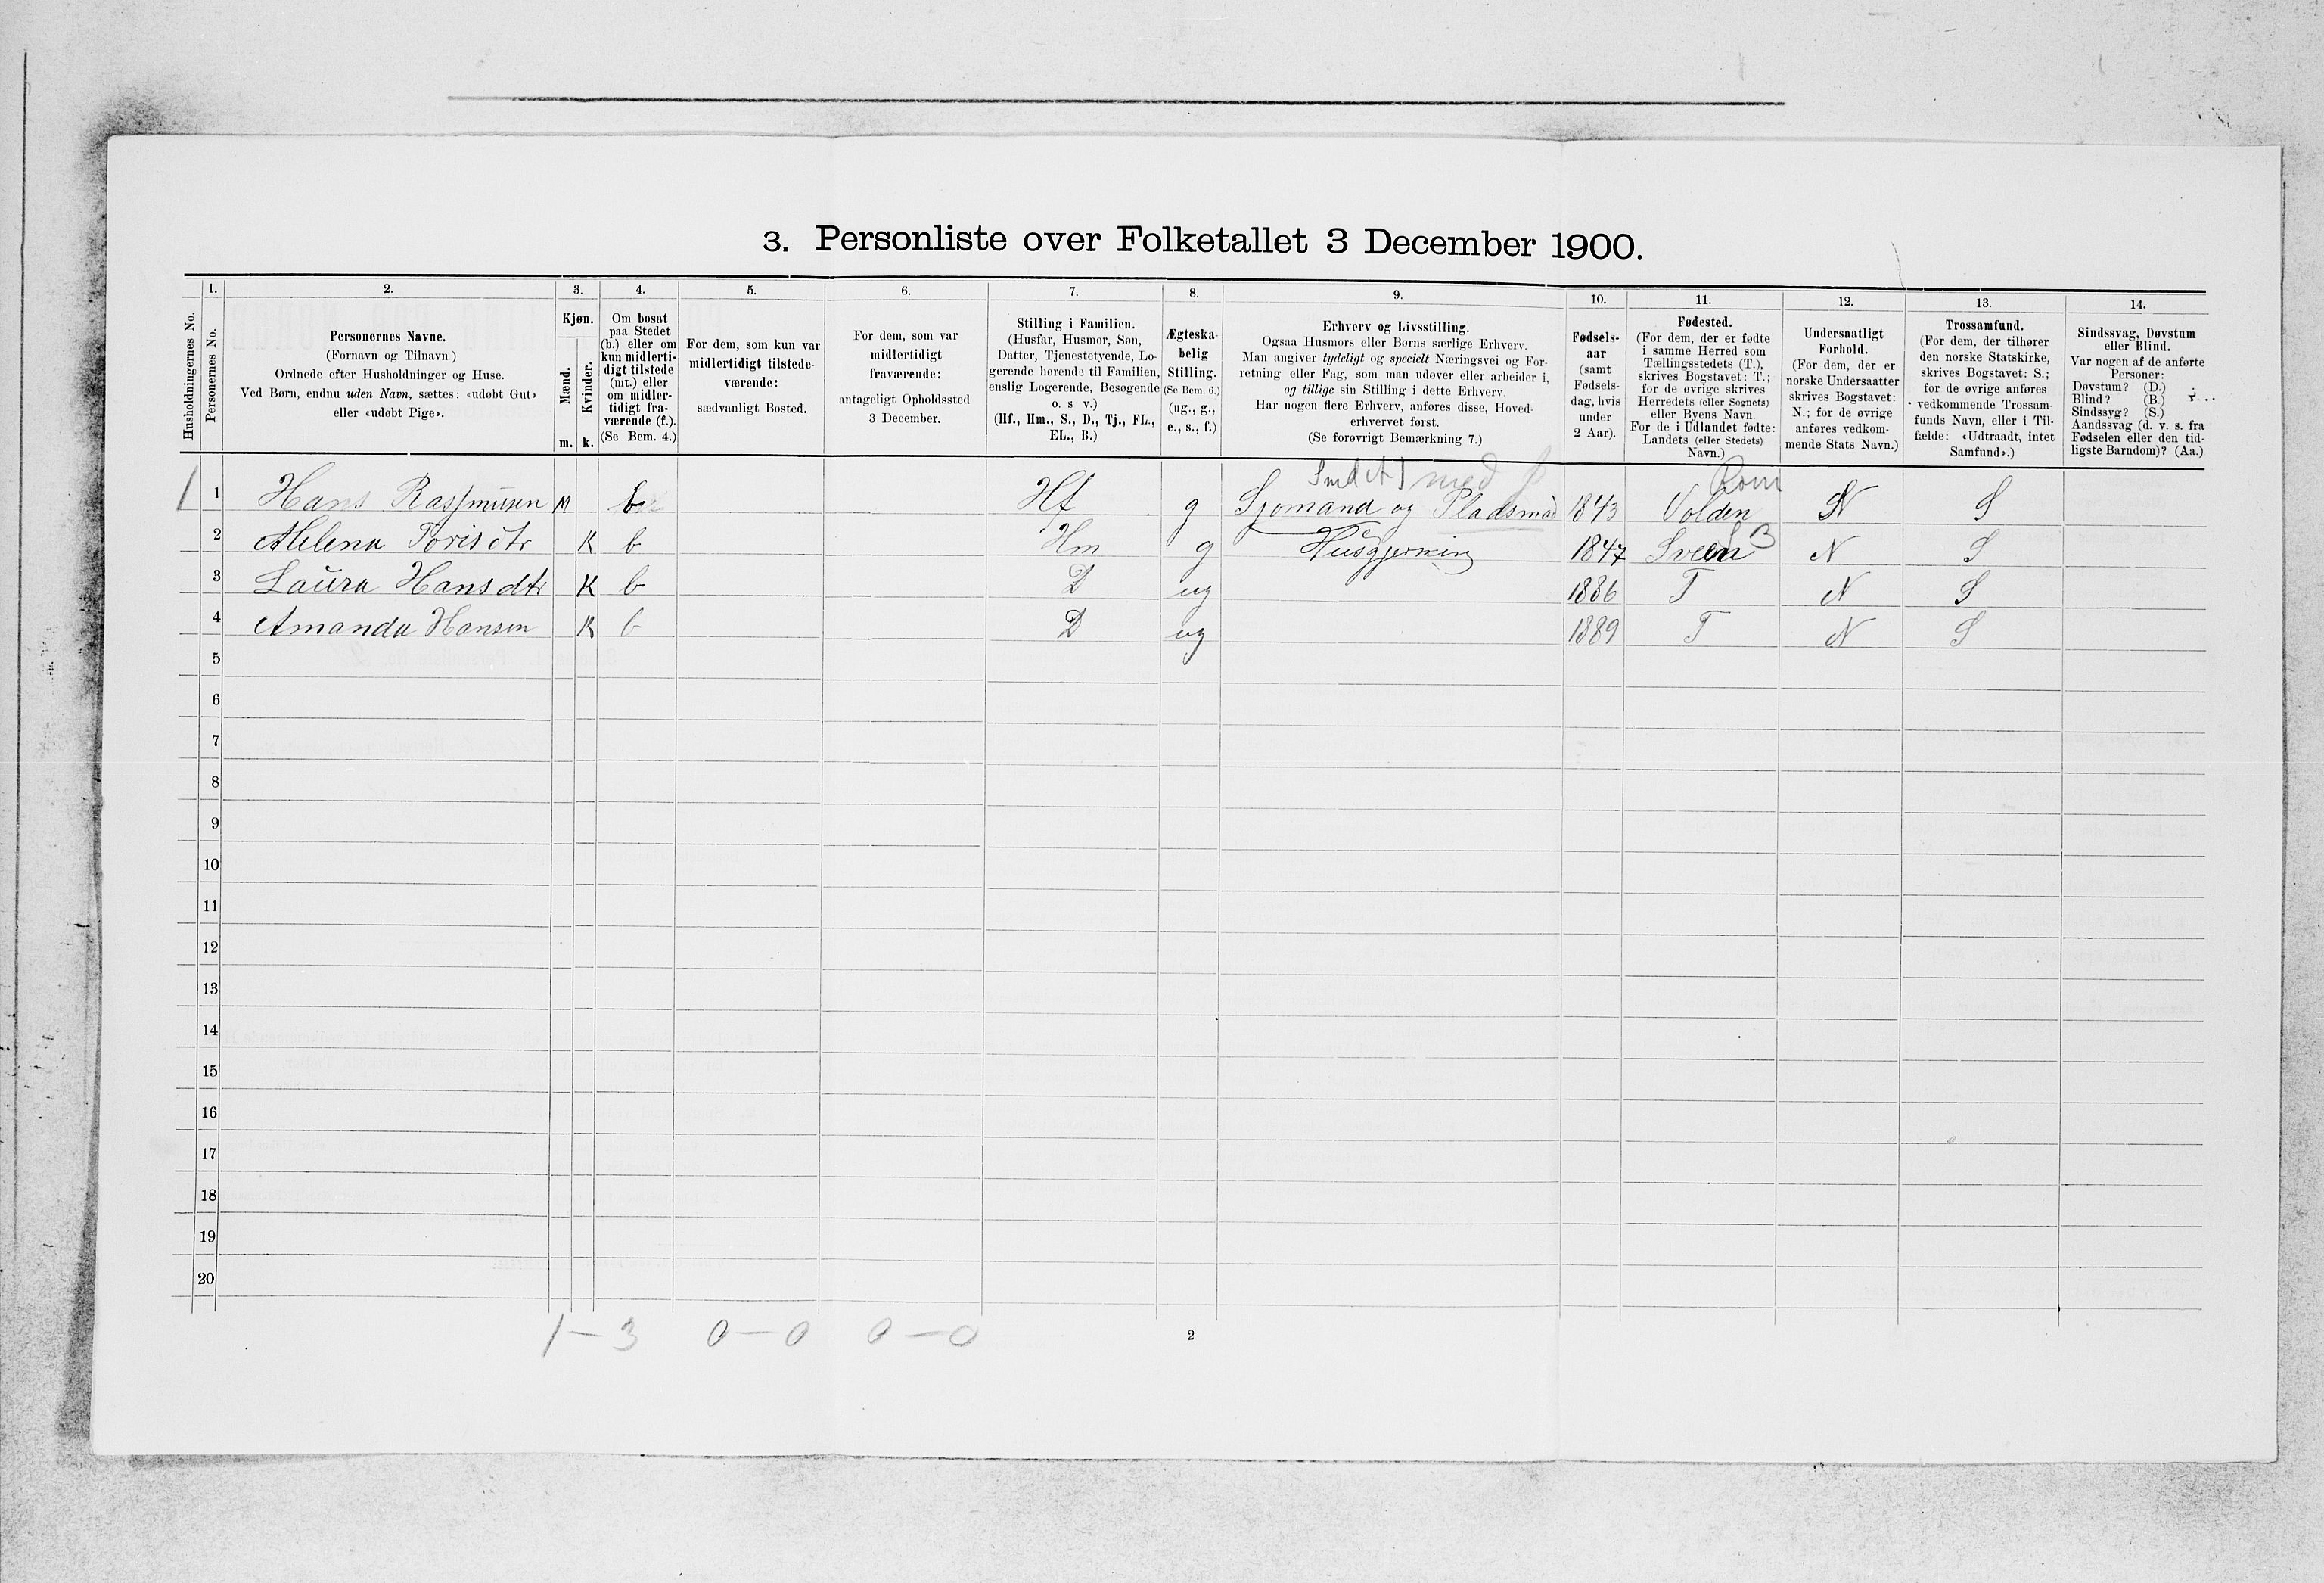 3. Personliste over Folketallet 3 December 1900.
Husholdningernes No.
1.
Personernes No.
2.
Personernes Navne.
(Fornavn og Tilnavn)
Ordnede efter Husholdninger og Huse.
Ved Børn, endnu uden Navn, sættes: «udøbt Gut»
eller «udøbt Pige».
3.
Kjøn.
Mænd.
m.
Kvinder.
k.
4.
Om bosat
paa Stedet
(b.) eller om
kun midlerti-
digt tilstede
(mt.) eller
om midler-
tidigt fra-
værende (f.).
(Se Bem. 4.)
5.
For dem, som kun var
midlertidigt tilstede-
værende:
sædvanligt Bosted.
6.
For dem, som var
midlertidigt
fraværende:
antageligt Opholdssted
3 December.
7.
Stilling i Familien.
(Husfar, Husmor, Søn,
Datter, Tjenestetyende, Lo-
gerende hørende til Familien,
enslig Logerende, Besøgende
o. s v.)
(Hf., Hm., S., D., Tj., FL.,
EL., B.)
8.
Ægteska-
belig
Stilling.
(Se Bem. 6.)
(ug., g.,
e., s., f.)
9.
Erhverv og Livsstilling.
Ogsaa Husmors eller Børns særlige Erhverv.
Man angiver tydeligt og specielt Næringsvei og For-
retning eller Fag, som man udøver eller arbeider i,
og tillige sin Stilling i dette Erhverv.
Har nogen flere Erhverv, anføres disse, Hoved-
erhvervet først.
(Se forøvrigt Bemærkning 7.)
10.
Fødsels-
aar
(samt
Fødsels-
dag, hvis
under
2 Aar).
11.
Fødested.
(For dem, der er fødte
i samme Herred som
Tællingsstedets (T.),
skrives Bogstavet: T.;
for de øvrige skrives
Herredets (eller Sognets)
eller Byens Navn.
For de i Udlandet fødte:
Landets (eller Stedets)
Navn.)
12.
Undersaatligt
Forhold.
(For dem, der er
norske Undersaatter
skrives Bogstavet:
N.; for de øvrige
anføres vedkom-
mende Stats Navn.)
13.
Trossamfund.
(For dem, der tilhører
den norske Statskirke,
skrives Bogstavet: S.;
for de øvrige anføres
vedkommende Trossam-
funds Navn, eller i Til-
fælde: «Udtraadt, intet
Samfund».)
14.
Sindssvag, Døvstum
eller Blind.
Var nogen af de anførte
Personer:
Døvstum? (D.)
Blind? (B.)
Sindssyg? (S.)
Aandssvag (d. v. s. fra
Fødselen eller den tid-
ligste Barndom)? (Aa.)
med
1 1 Hans Rasmusen M b Hf g Sjømand og Pladsmad 1843 Volden N S
2 Helena Torisdtr K b Hm g Husgjerning 1847 N S
3 Laura Hansdtr K b D ug 1886 T N S
4 Amanda Hansen K b D ug 1889 T N S
5
6
7
8
9
10
11
12
13
14
15
16
17
18
19
20
1 – 3 0 – 0 0 – 0
2